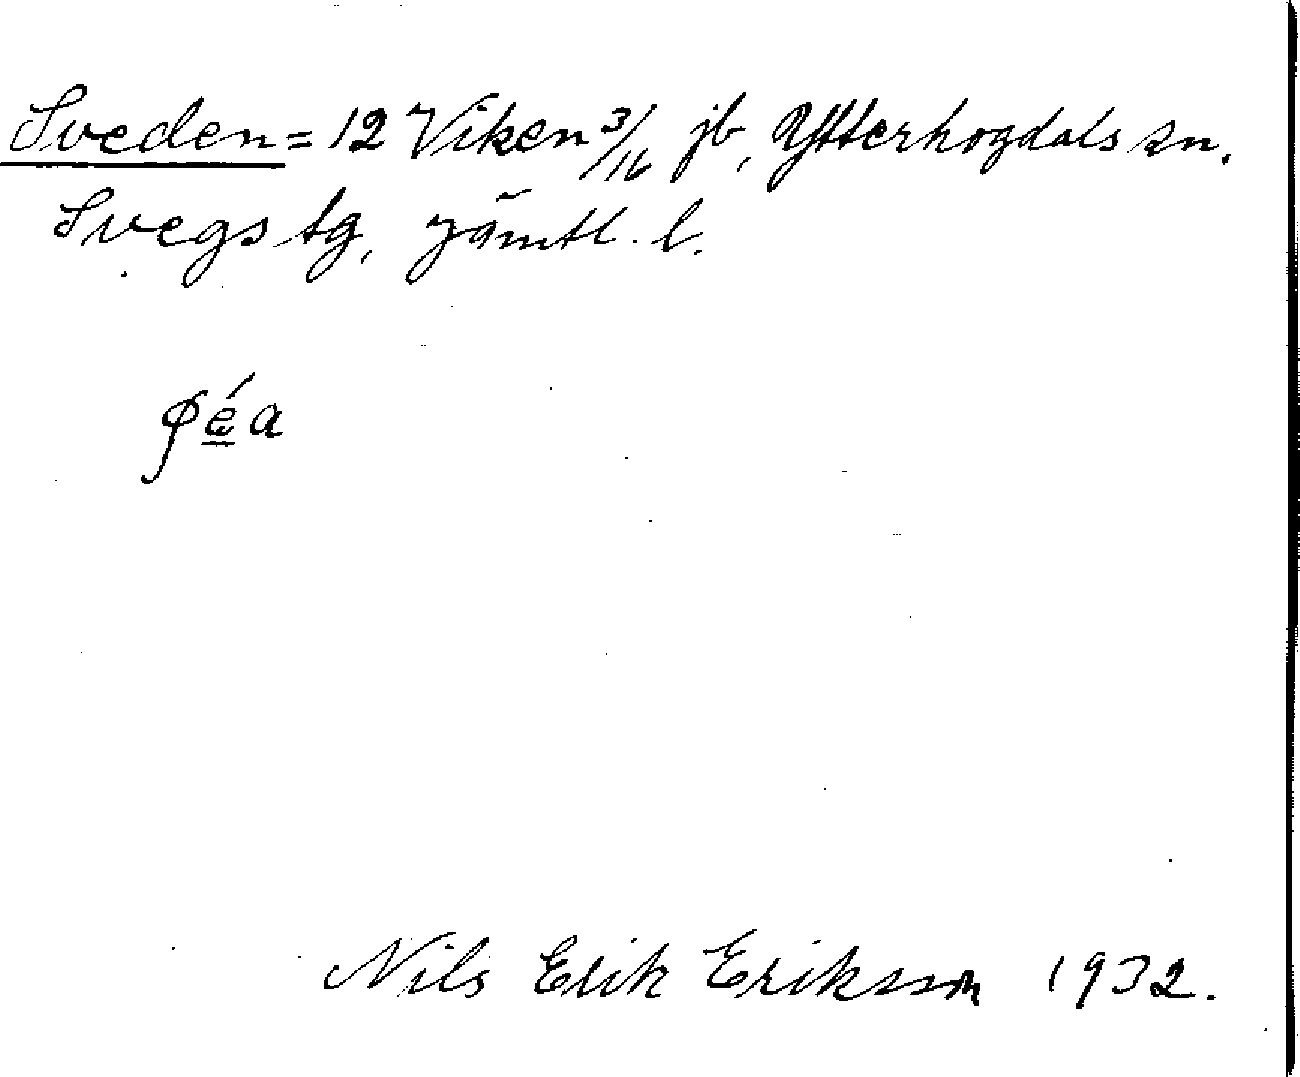 Sveden = 12 Viken 3/16 jb, Ytterhogdals sn.
Svegs tg, Jämtl. l.
Nils Erik Eriksson 1932.